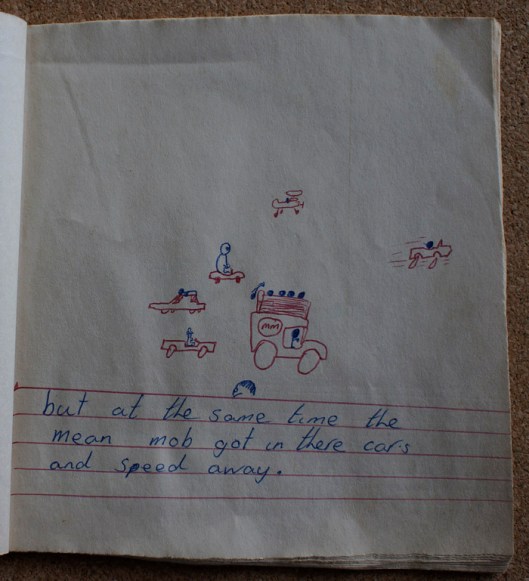 MM
but at the same time the
mean mob got in there cars
and speed away.